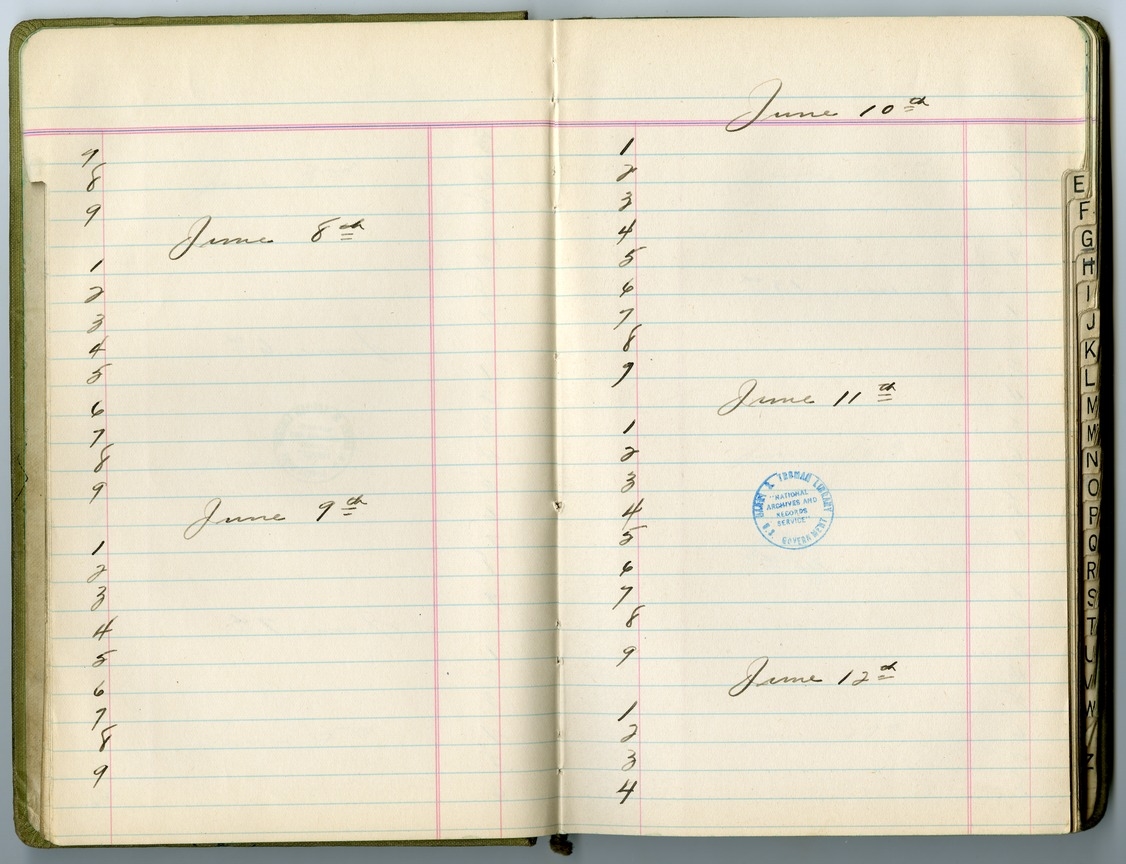 7
8
9
June 8th
1
2
3
4
5
6
7
8
9
June 9th
1
2
3
4
5
6
7
8
9
June 10th
1
2
3
4
5
6
7
8
9
June 11th
1
2
3
4
5
6
7
8
9
June 12th
1
2
3
4
HARRY S. TRUMAN LIBRARY
"NATIONAL
ARCHIVES AND
RECORDS
SERVICE"
U.S. GOVERNMENT
E
F
G
H
I
J
K
L
M
Mc
N
O
P
Q
R
S
T
U
V
W
Z